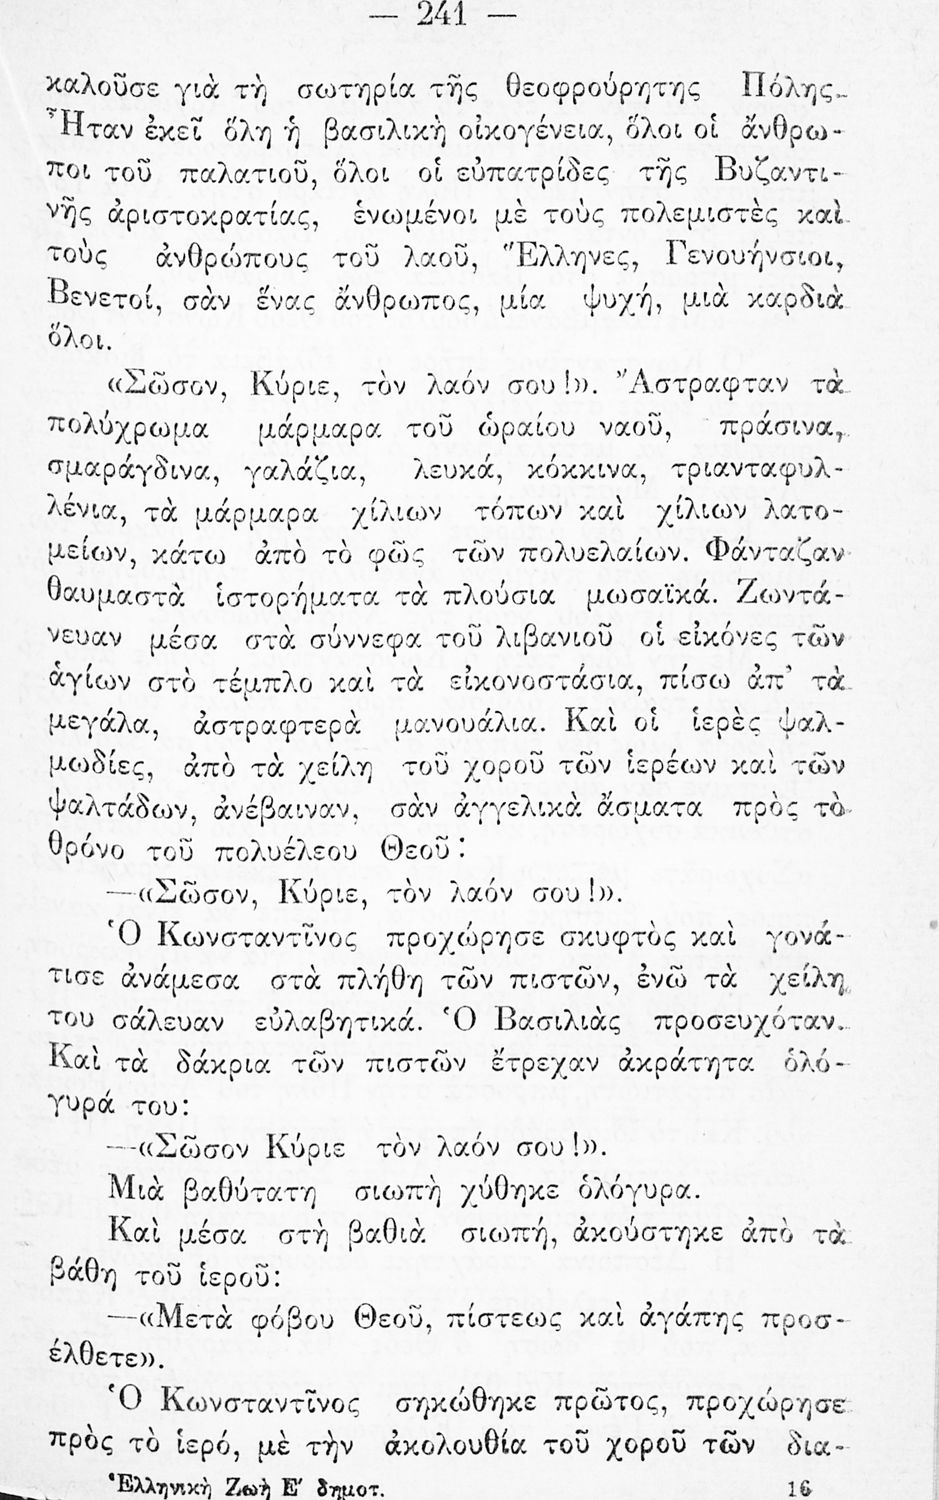 — 241 —
καλοῦσε γιὰ τὴ σωτηρία τῆς θεοφρούρητης Πόλης.
Ἦταν ἐκεῖ ὅλη ἡ βασιλικὴ οἰκογένεια, ὅλοι οἱ ἄνθρω-
ποι τοῦ παλατιοῦ, ὅλοι οἱ εὐπατρίδες τῆς Βυζαντι-
νῆς ἀριστοκρατίας, ἑνωμένοι μὲ τοὺς πολεμιστὲς καὶ
τοὺς ἀνθρώπους τοῦ λαοῦ, Ἕλληνες, Γενουήνσιοι,
Βενετοί, σὰν ἕνας ἄνθρωπος, μία ψυχή, μιὰ καρδιὰ
ὅλοι.
«Σῶσον, Κύριε, τὸν λαόν σου!». Ἄστραφταν τὰ
πολύχρωμα μάρμαρα τοῦ ὡραίου ναοῦ, πράσινα,
σμαράγδινα, γαλάζια, λευκά, κόκκινα, τριανταφυλ-
λένια, τὰ μάρμαρα χίλιων τόπων καὶ χίλιων λατο-
μείων, κάτω ἀπὸ τὸ φῶς τῶν πολυελαίων. Φάνταζαν
θαυμαστὰ ἱστορήματα τὰ πλούσια μωσαϊκά. Ζωντά-
νευαν μέσα στὰ σύννεφα τοῦ λιβανιοῦ οἱ εἰκόνες τῶν
ἁγίων στὸ τέμπλο καὶ τὰ εἰκονοστάσια, πίσω ἀπ’ τὰ
μεγάλα, ἀστραφτερὰ μανουάλια. Καὶ οἱ ἱερὲς ψαλ-
μωδίες, ἀπὸ τὰ χείλη τοῦ χοροῦ τῶν ἱερέων καὶ τῶν
ψαλτάδων, ἀνέβαιναν, σὰν ἀγγελικὰ ἄσματα πρὸς τὸ
θρόνο τοῦ πολυέλεου Θεοῦ:
—«Σῶσον, Κύριε, τὸν λαόν σου!».
Ὁ Κωνσταντῖνος προχώρησε σκυφτὸς καὶ γονά-
τισε ἀνάμεσα στὰ πλήθη τῶν πιστῶν, ἐνῶ τὰ χείλη
του σάλευαν εὐλαβητικά. Ὁ Βασιλιὰς προσευχόταν.
Καὶ τὰ δάκρια τῶν πιστῶν ἔτρεχαν ἀκράτητα ὁλό-
γυρά του:
—«Σῶσον Κύριε τὸν λαόν σου!».
Μιὰ βαθύτατη σιωπὴ χύθηκε ὁλόγυρα.
Καὶ μέσα στὴ βαθιὰ σιωπή, ἀκούστηκε ἀπὸ τὰ
βάθη τοῦ ἱεροῦ:
—«Μετὰ φόβου Θεοῦ, πίστεως καὶ ἀγάπης προσ-
έλθετε».
Ὁ Κωνσταντῖνος σηκώθηκε πρῶτος, προχώρησε
πρὸς τὸ ἱερό, μὲ τὴν ἀκολουθία τοῦ χοροῦ τῶν δια-
Ἑλληνικὴ Ζωὴ Ε′ δημοτ. 16